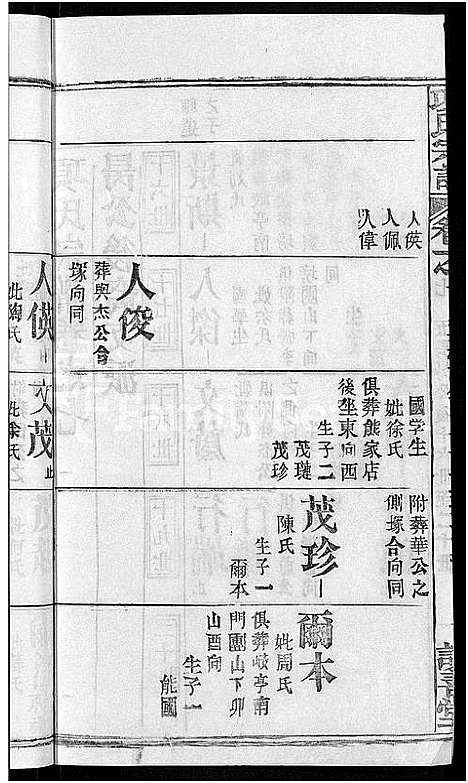 項氏宗譜
人僙
人佩
人偉
人俊
葬與杰公合
塚向同
人僙
妣陶氏
國學生
妣徐氏
俱葬熊家店
後坐東向西
生子二
茂璉
茂珍
文茂 止
妣余氏
附葬華公之
側塚合向同
茂珍
陳氏
生子一
爾本
爾本
妣周氏
俱葬岐亭南
門團山下卯
山酉向
生子一
能國